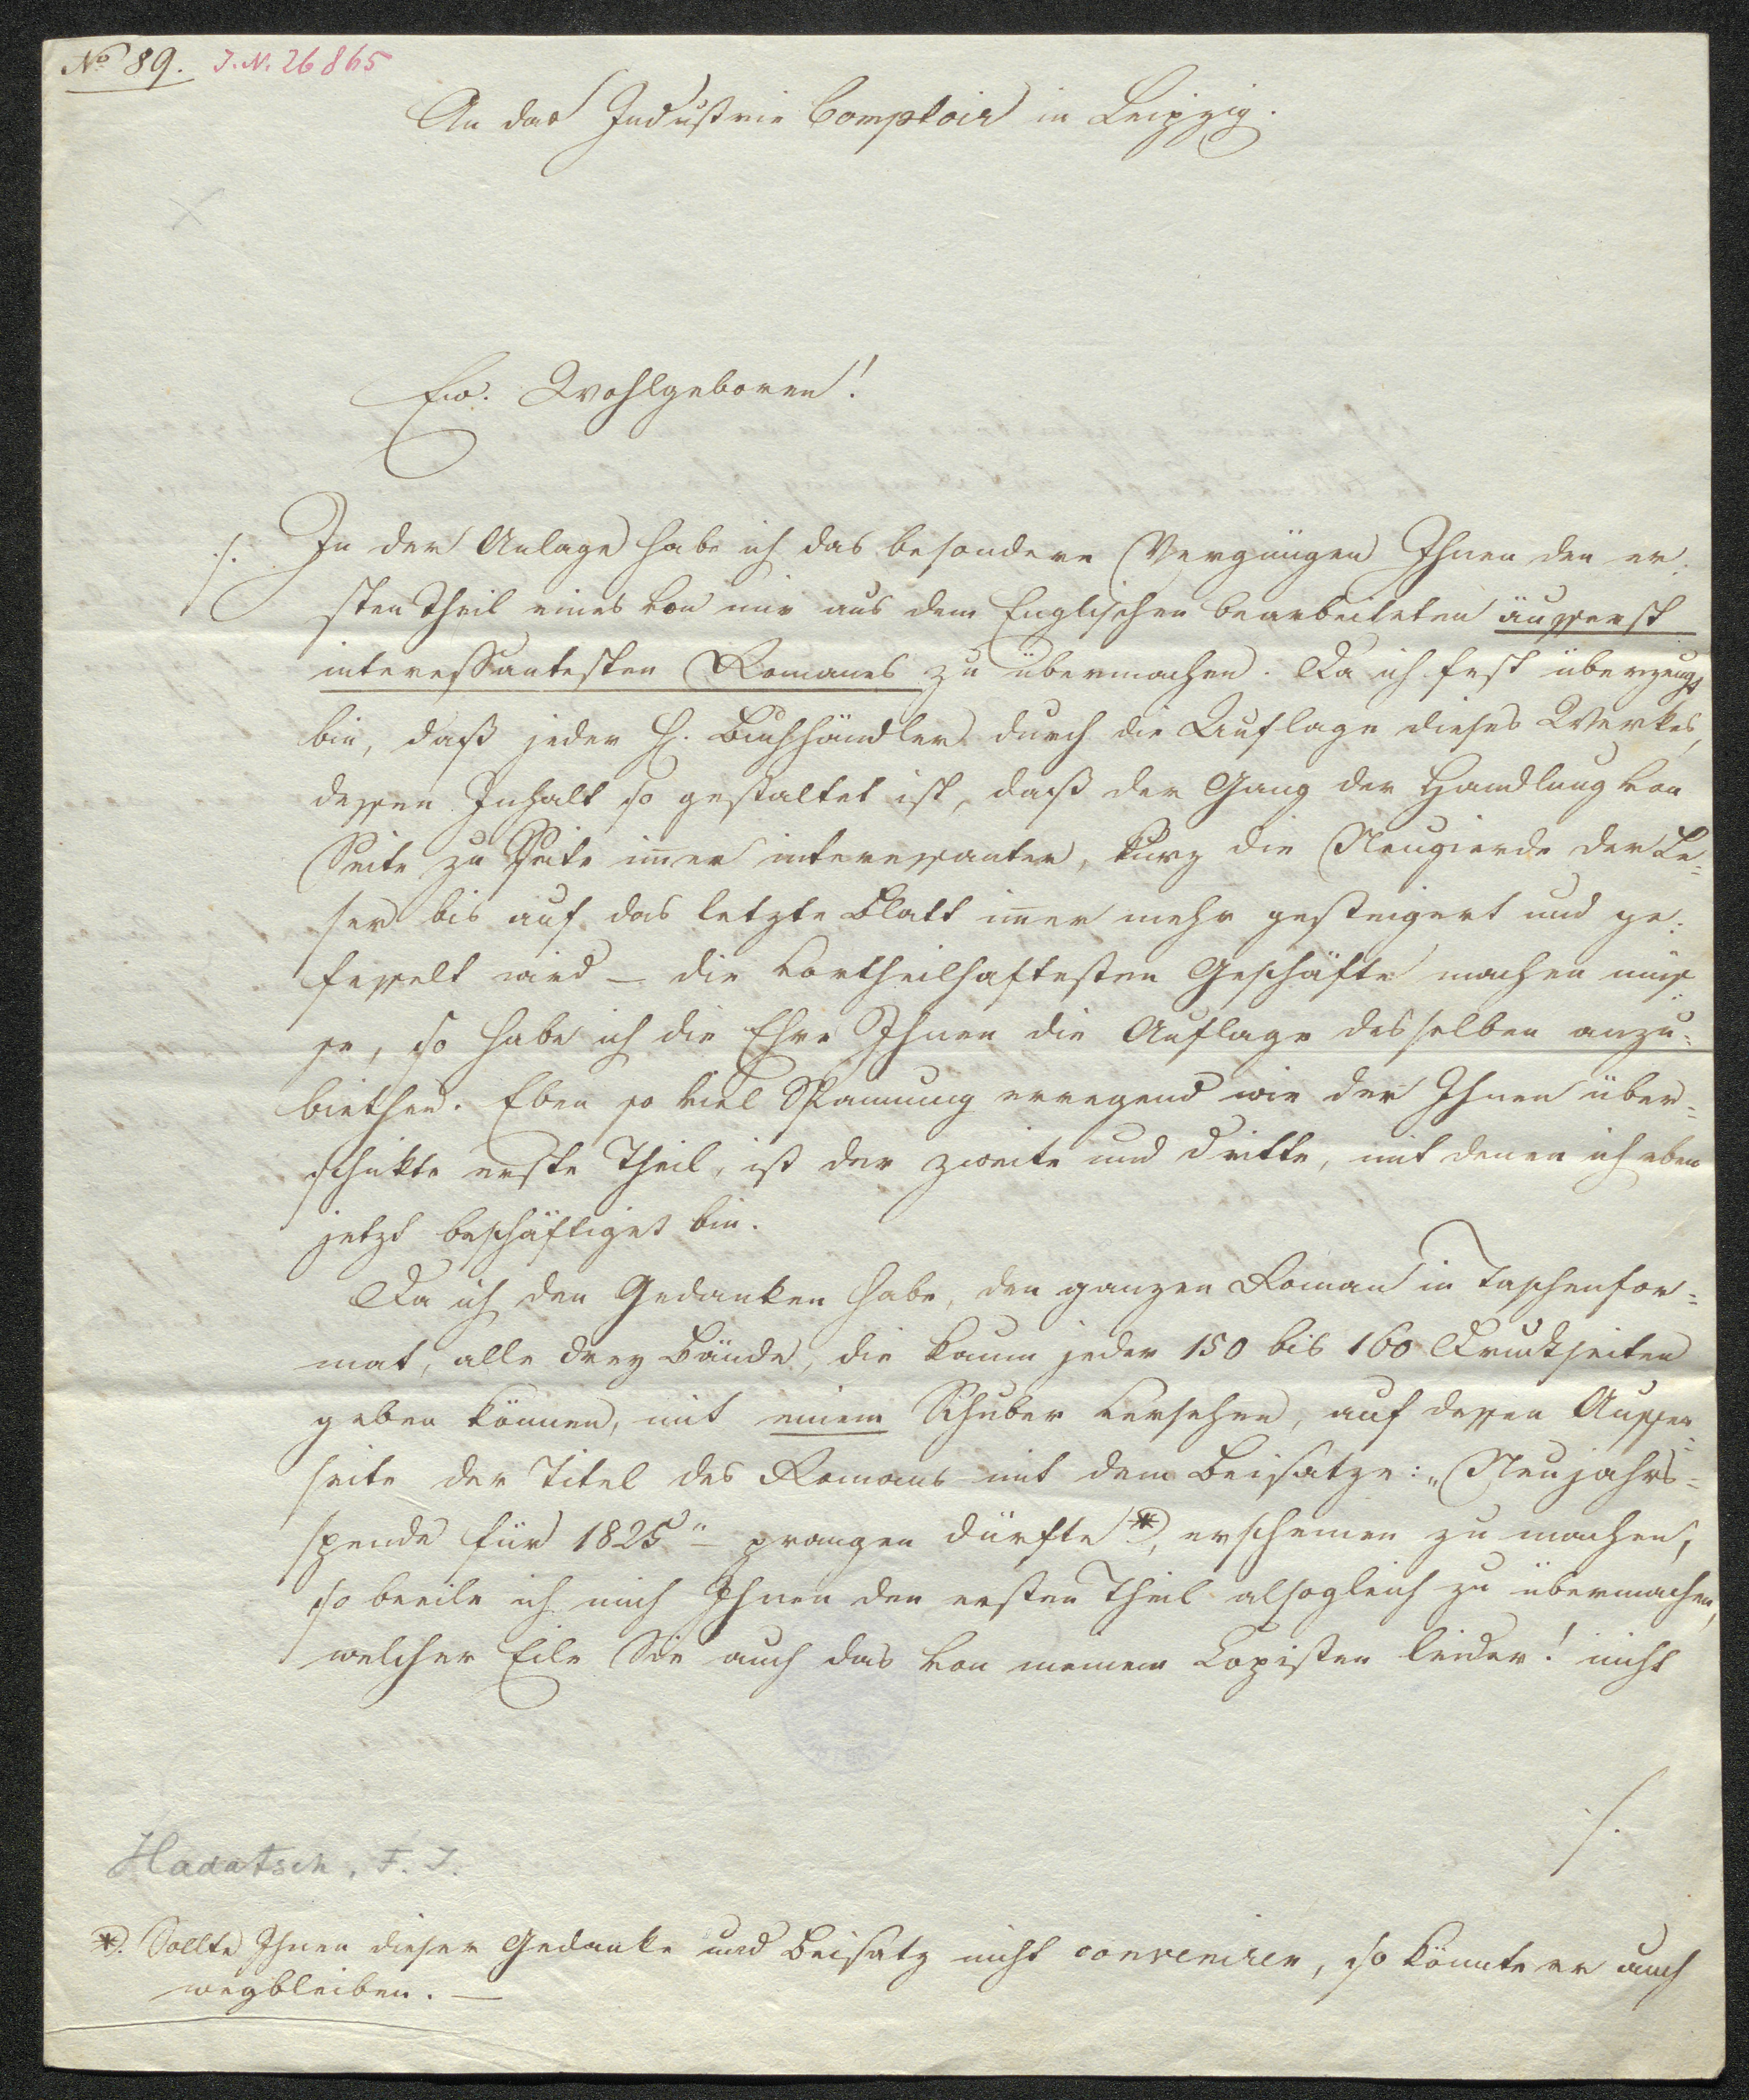 No 89. J.N. 26865
An das Industrie Comptoir in Leipzig.
Ew. Wohlgeboren!
./. In der Anlage habe ich das besondere Vergnügen Ihnen den er-
sten Theil eines von mir aus dem Englischen bearbeiteten äusserst
interessantesten Romanes zu übermachen. Da ich fest überzeugt
bin, daß jeder H. Buchhändler durch die Auflage dieses Werkes,
dessen Inhalt so gestaltet ist, daß der Gang der Handlung von
Seite zu Seite im̅er interessanter, kurz die Neugierde der Le-
ser bis auf das letzte Blatt im̅er mehr gesteigert und ge-
fesselt wird – die vortheilhaftesten Geschäfte machen müs-
se, so habe ich die Ehre Ihnen die Auflage desselben anzu-
biethen. Eben so viel Spannung erregend wie der Ihnen über-
schikte erste Theil, ist der zweite und dritte, mit denen ich eben
jetzt beschäftiget bin.
Da ich den Gedanken habe, den ganzen Roman in Taschenfor-
mat, alle drey Bände, die kaum jeder 150 bis 160 Druckseiten
geben können, mit einem Schuber versehen, auf dessen Aussen-
seite der Titel des Romans mit dem Beisatze: „Neujahrs-
spende für 1825" – prangen dürfte *), erscheinen zu machen,
so beeile ich mich Ihnen den ersten Theil alsogleich zu übermachen,
welcher Eile Sie auch das von meinem Copisten leider! nicht
./.
Hadatsch, F. J.
*). Sollte Ihnen dieser Gedanke und Beisatz nicht conveniren, so könnte er auch
wegbleiben. —